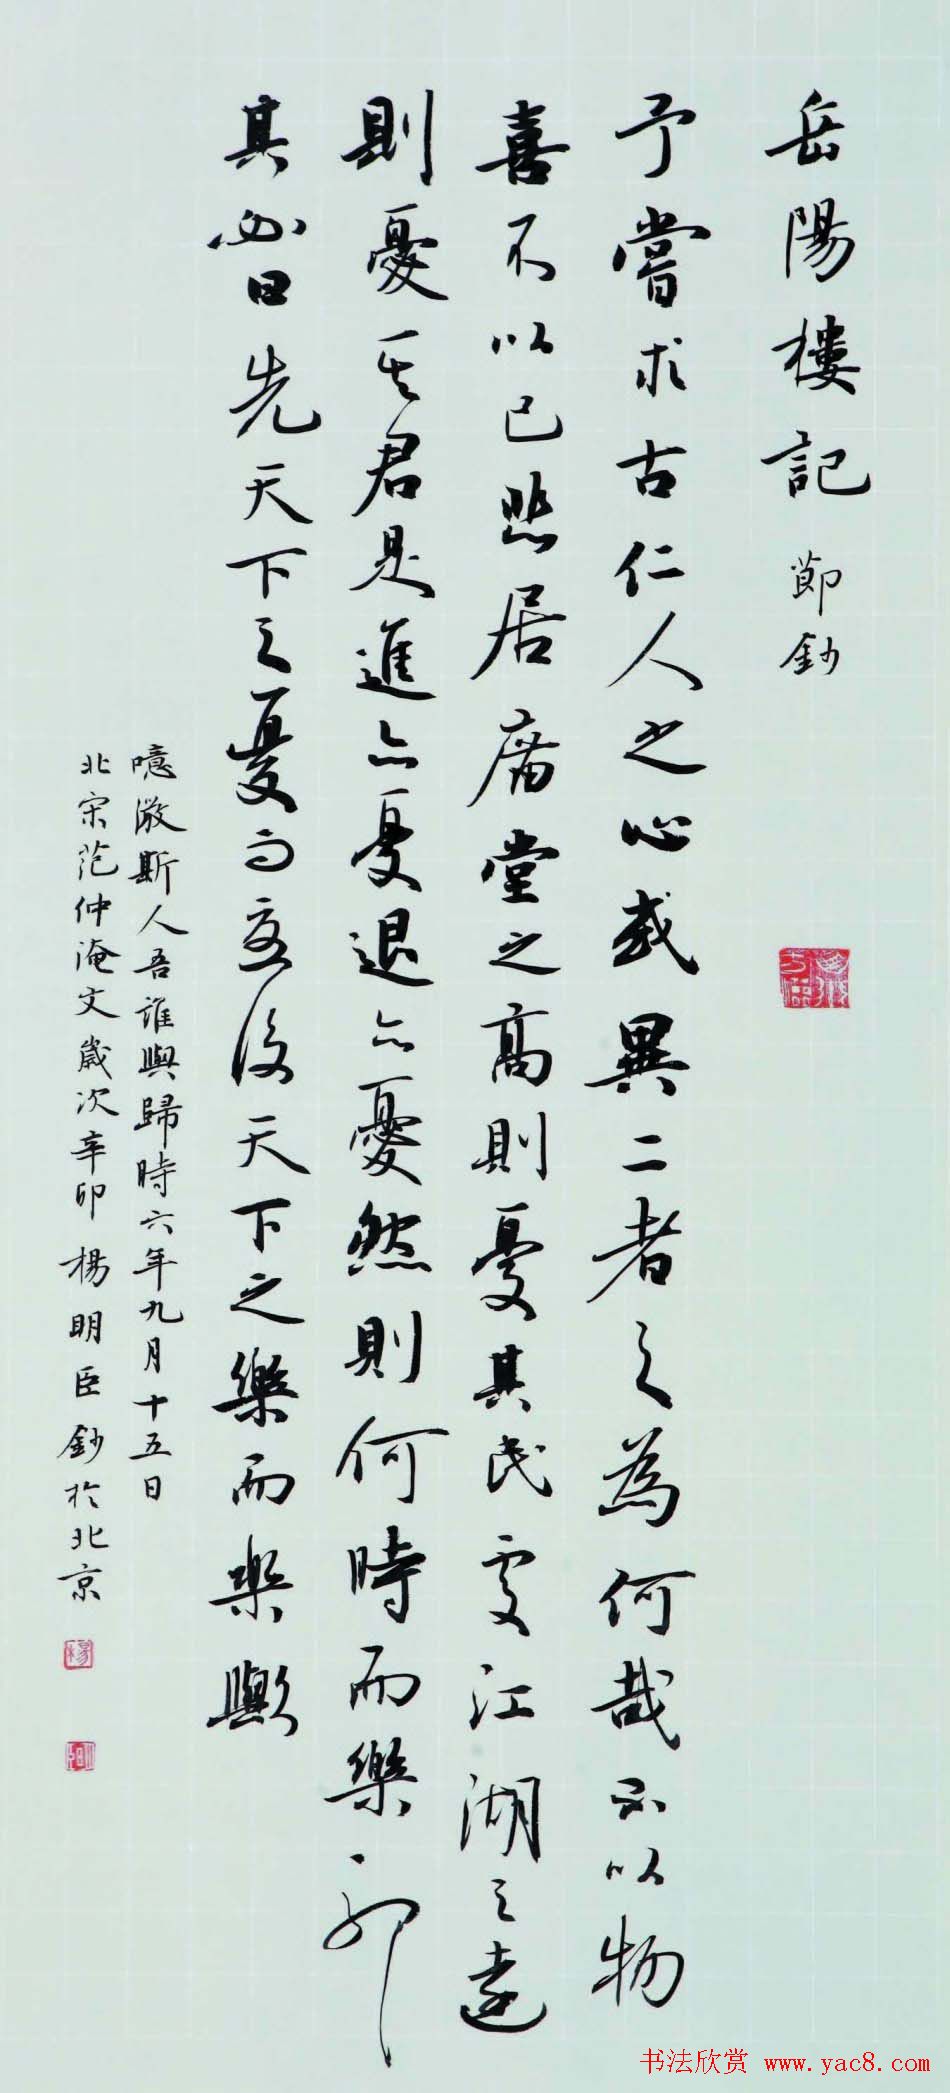 岳陽樓記 節鈔
予嘗求古仁人之心或異二者之為何哉不以物
喜不以己悲居廟堂之高則憂其民處江湖之遠
則憂其君是進亦憂退亦憂然則何時而樂耶
其必曰先天下之憂而憂後天下之樂而樂歟
噫微斯人吾誰與歸時六年九月十五日
北宋范仲淹文歲次辛卯楊明臣鈔於北京
书法欣赏 www.yac8.com